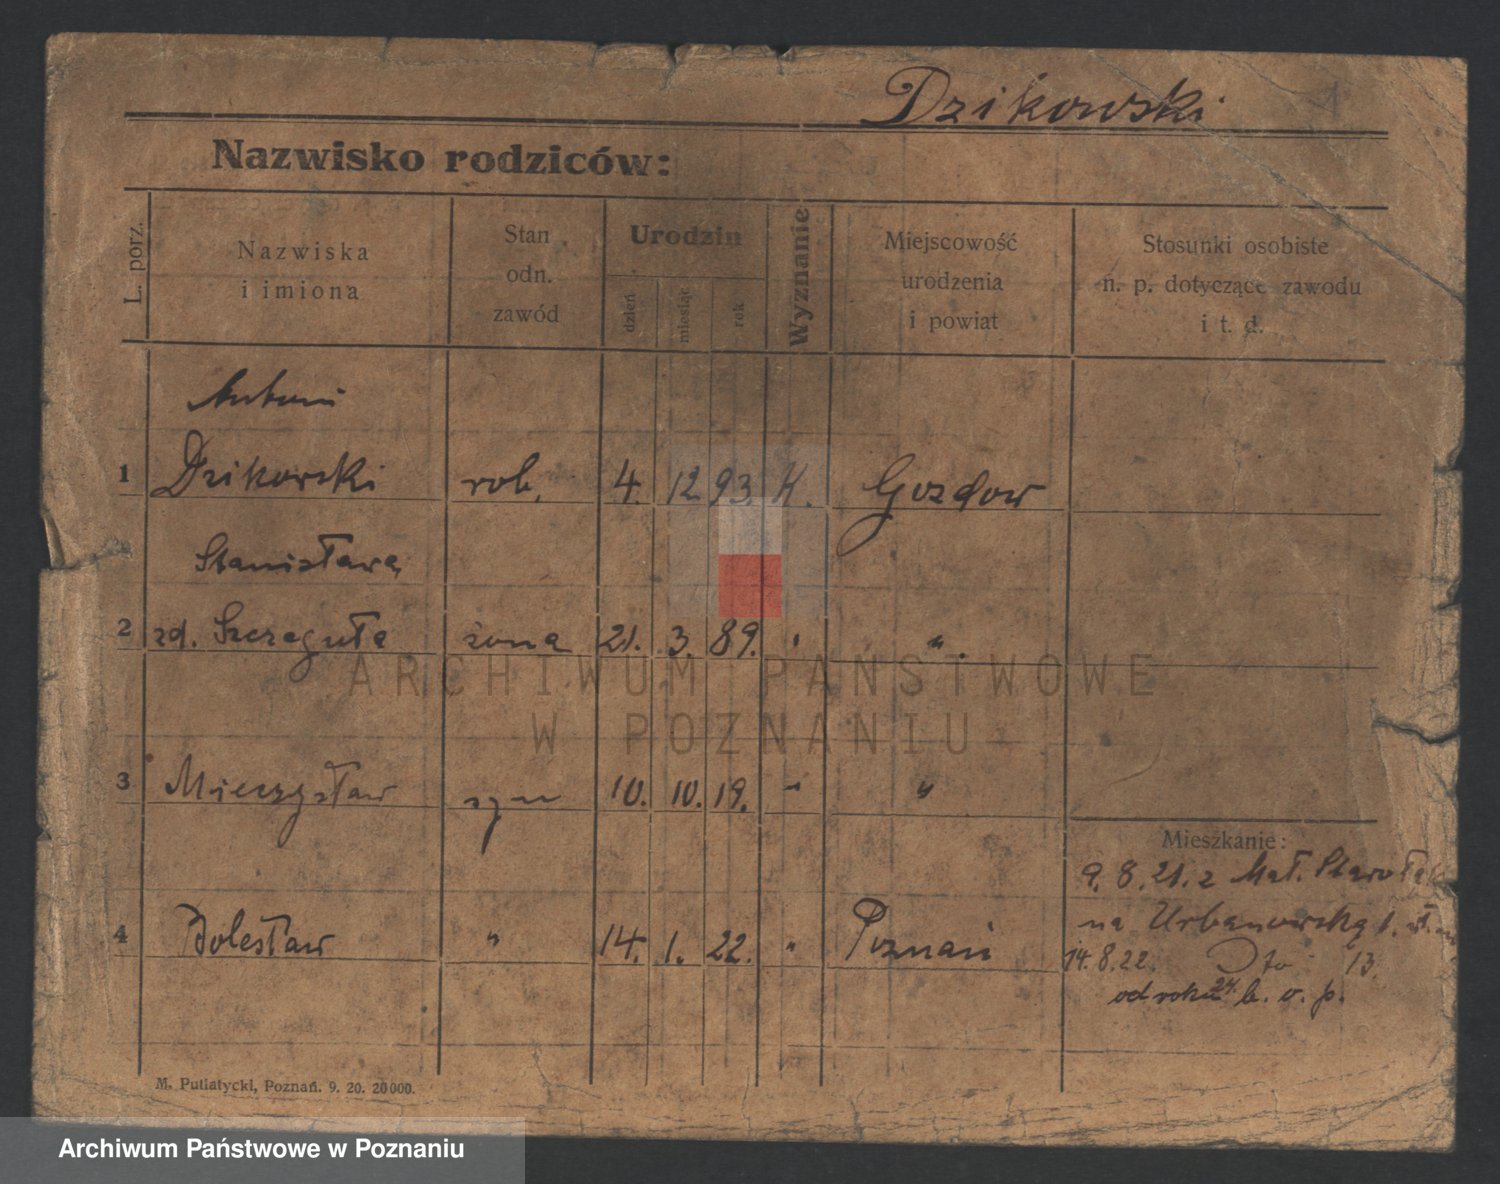 Dzikowski
Nazwisko rodziców:
L. porz.
Nazwiska
i imiona
Stan
odn.
zawód
Urodzin
dzień
miesiąc
rok
Wyznanie
Miejscowość
urodzenia
i powiat
Stosunki osobiste
n. p. dotyczące zawodu
i t. d.
Antoni
1 Dzikowski rob. 4. 12. 93. K. Gozdow
Stanisława
2 zd. Szczeguła żona 21. 3. 89. " "
3 Mieczysław syn 10. 10. 19. " "
Mieszkanie:
9. 8. 21. z Mał. Starołęk
na Urbanowską 1.
4 Bolesław " 14. 1. 22. " Poznań
14. 8. 22. Dto 13.
od roku 24. b. o. p.
M. Putiatycki, Poznań. 9. 20. 20000.
ARCHIWUM PAŃSTWOWE
W POZNANIU
Archiwum Państwowe w Poznaniu